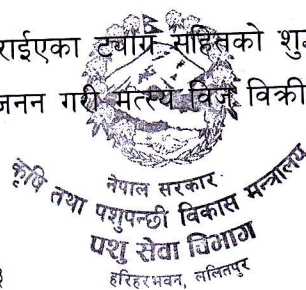 राईएका ट्यांग्र सहितको शु
जनन गरी मत्स्य विज विक्री
नेपाल सरकार
कृषि तथा पशुपन्छी विकास मन्त्रालय
पशु सेवा विभाग
हरिहरभवन, ललितपुर